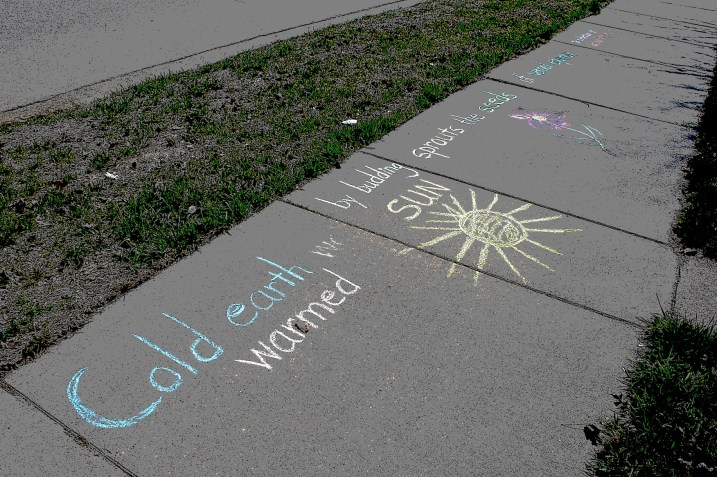 Cold earth
warmed
by budding
SUN
sprouts the seeds